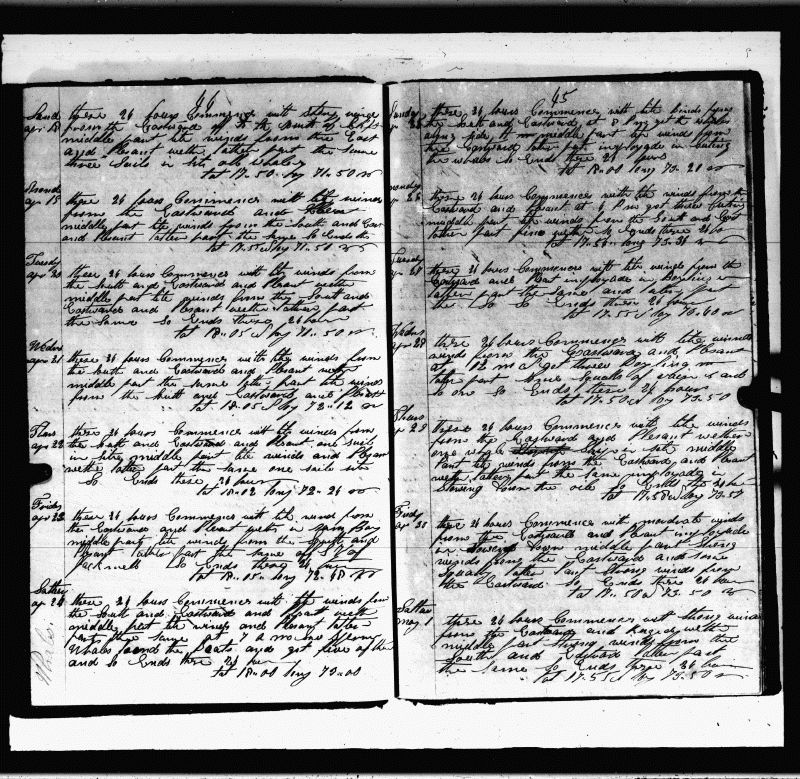 44
Sund these 24 hours Commences with strong winds
apr 18 from the Eastward
middle part lite winds from the East
and Plesant wether latter part the same
three Sails in sit all whalers
Lat 17-50 long 71-50
Mond these 24 hours Commences with lite winds
apr 19 from the Eastwards and
middle part lite winds from the South and East
and Plesant latter part the same So Ends
Lat 17-55 long 71-50
Tuesdy these 24 hours Commences with lite winds from
apr 20 the South and Eastwards and Plesant wether
middle part lite winds from the South and
Eastwards and Plesant wether latter part
the Same So Ends these 24 hours
Lat 18-05 long 71-50
Wedns these 24 hours Commences with lite winds from
apr 21 the South and Eastwards and Plesant wether
middle part the same latter part lite winds
from the South and Eastwards and Plesant
Lat 18-05 long 72-12
Thurs these 24 hours Commences with lite winds from
apr 22 the South and Eastward and Plesant one sail
in site middle part lite winds and Plesant
wether latter part the same one sail in site
So Ends these 24 hours
Lat 18-02 long 72-26
Friday these 24 hours Commences with lite winds from
apr 23 the Eastwards and Plesant wether
middle part lite winds from the South and
Plesant latter part the same off
So Ends these 24 hours
Lat 18-05 long 72-48
Satterdy these 24 hours Commences with lite winds from
apr 24 the South and Eastwards and Plesant wether
middle part lite winds and Plesant latter
part the same at 7 A m
Whales lowered the Boats and got five of them
and so Ends these 24 hours
Lat 18-00 long 73-00
45
Sunday these 24 hours Commences with lite winds from
the South and Eastward at 3 Pm got the whales
along side middle part lite winds from
the Eastward latter part imployade in cuting
the whales so Ends these 24 hours
Lat 18-00 long 73-20
Monday these 24 hours Commences with lite winds from the
apr 26 Eastward and Plesant at
middle part lite winds from the South and East
latter part fine wether So Ends these 24 ho
Lat 17-56 long 73-35
Tuesdy these 24 hours Commences with lite winds from the
Eastward and Plesant imployade in Boyling
latter part
the So So Ends these 24 hours
Lat 17-55 long 73-40
Wedns these 24 hours Commences with lite winds
apr 28 winds from the Eastwards and Plesant
at 12 m got through Boyling
latter part Some Squalls of rain and
so one So Ends these 24 hours
Lat 17-50 long 73-50
Thurs these 24 hours Commences with lite winds
apr 29 from the Eastward and Plesant wether
one whale Ship in sit middle
Part lite winds from the Eastward and Plesant
wether latter part the same imployade in
Stowing Down the oile so Ends these 24 hours
Friday these 24 hours Commences with moderate winds
apr 30 from the Eastwards and Plesant imployade
in Stowing Down middle part strong
winds from the Eastward and some
Squalls latter Part strong winds from
the Eastward So Ends these 24 hours
Lat 17-50 long 73-50
Satter these 24 hours Commences with strong winds
may 1 from the Eastward and ruged wether
middle part strong winds from the
South and Eastward latter part
the Same So Ends these 24 hours
Lat 17-55 long 73-50